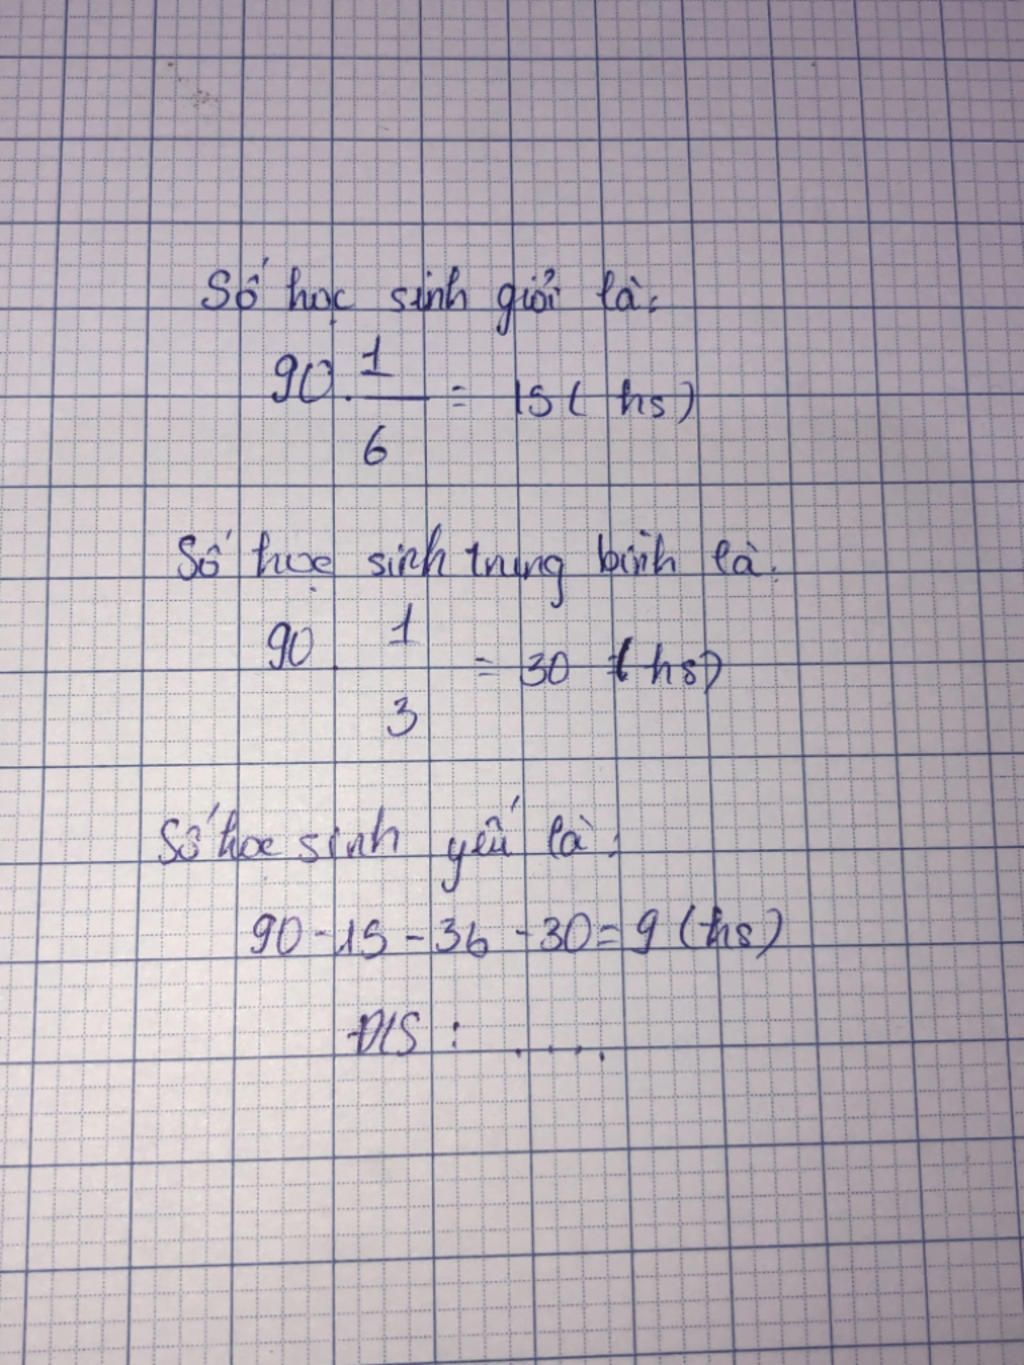 Số học sinh giỏi là:
90 . 1/6 = 15 ( hs )
Số học sinh trung bình là:
90 . 1/3 = 30 ( hs )
Số học sinh yếu là:
90 - 15 - 36 - 30 = 9 (hs)
Đ/S : ....